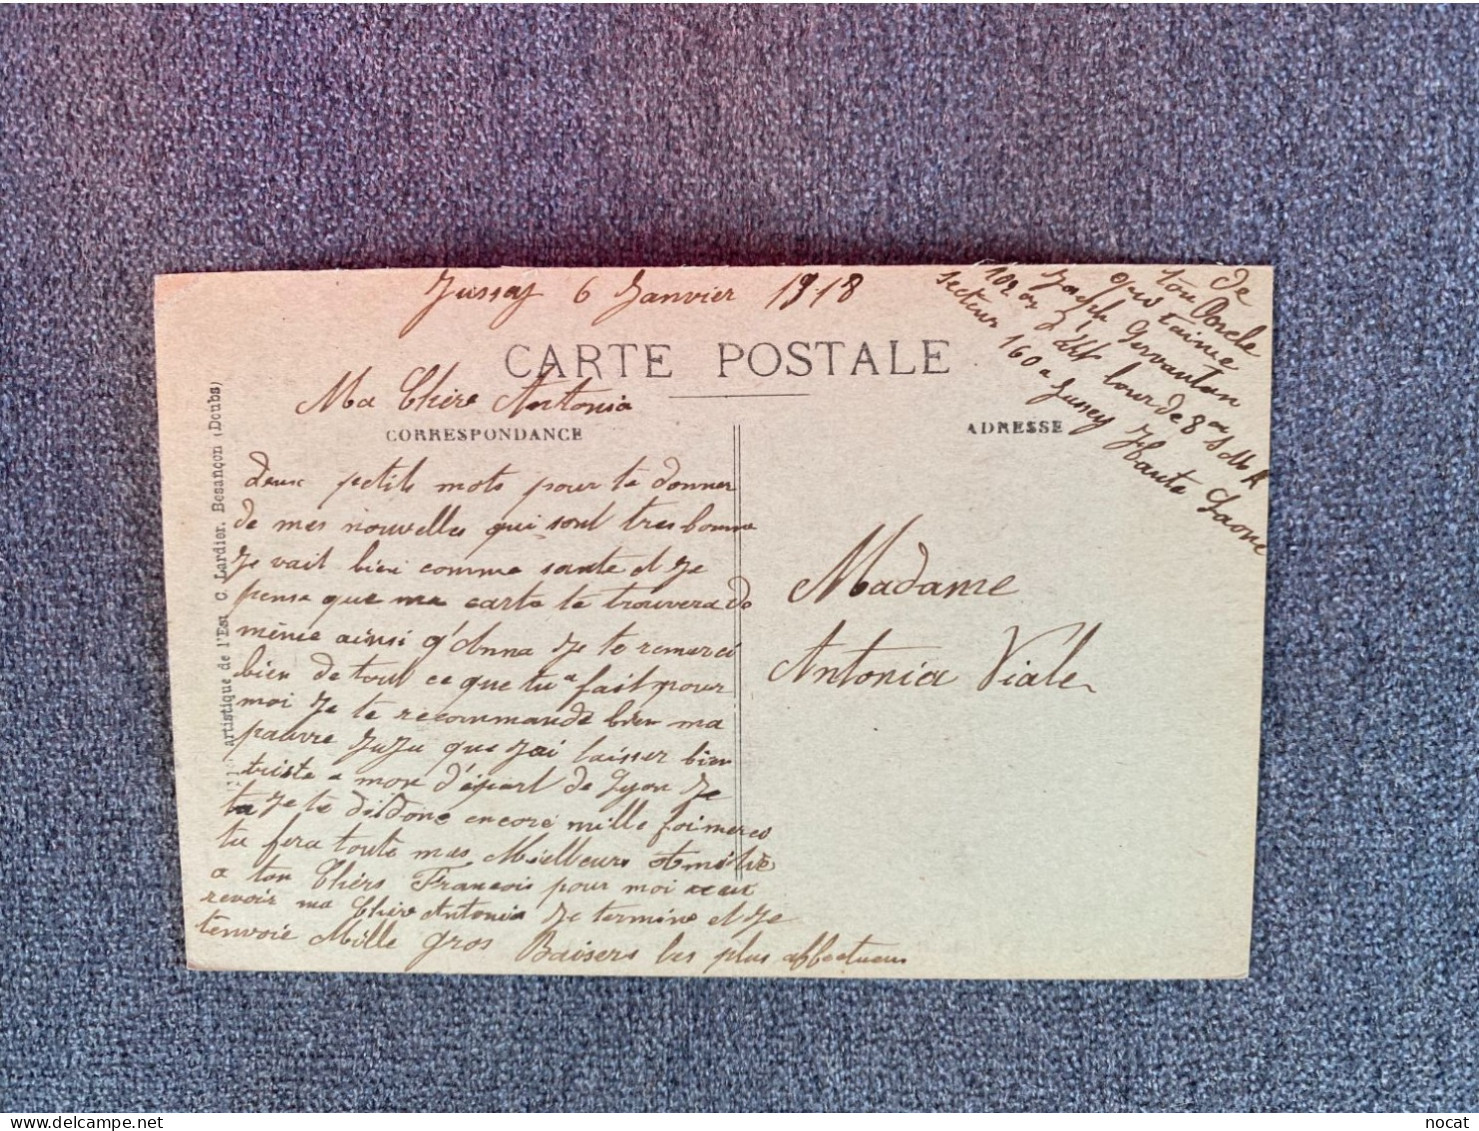 Jussey 6 Janvier 1918
de
ton Oncle
qui t'aime
Joseph Gervautan
102 d'Art lourde 8
secteur 160 a Jussey Haute Saone
CARTE POSTALE
Ma Chère Antonia
CORRESPONDANCE
ADRESSE
deux petits mots pour te donner
de mes nouvelles qui sont tres bonne
Je vait bien comme sante et Je
pense que ma carte te trouvera de
même ainsi q'Anna Je te remerci
bien de tout ce que tu a fait pour
moi Je te recommande bien ma
pauvre JuJu que J'ai laisser bien
triste a mon d'épart de Lyon Je
Je te didonc encore mille foi merci
tu fera toute mes Meilleurs
a ton Chèrs François pour moi
revoir ma Chère Antonia Je termine et Je
t'envoie Mille gros Baisers les plus affectueux
Madame
Antonia Viale
artistique de l'Est C. Lardier. Besançon (Doubs)
nocat